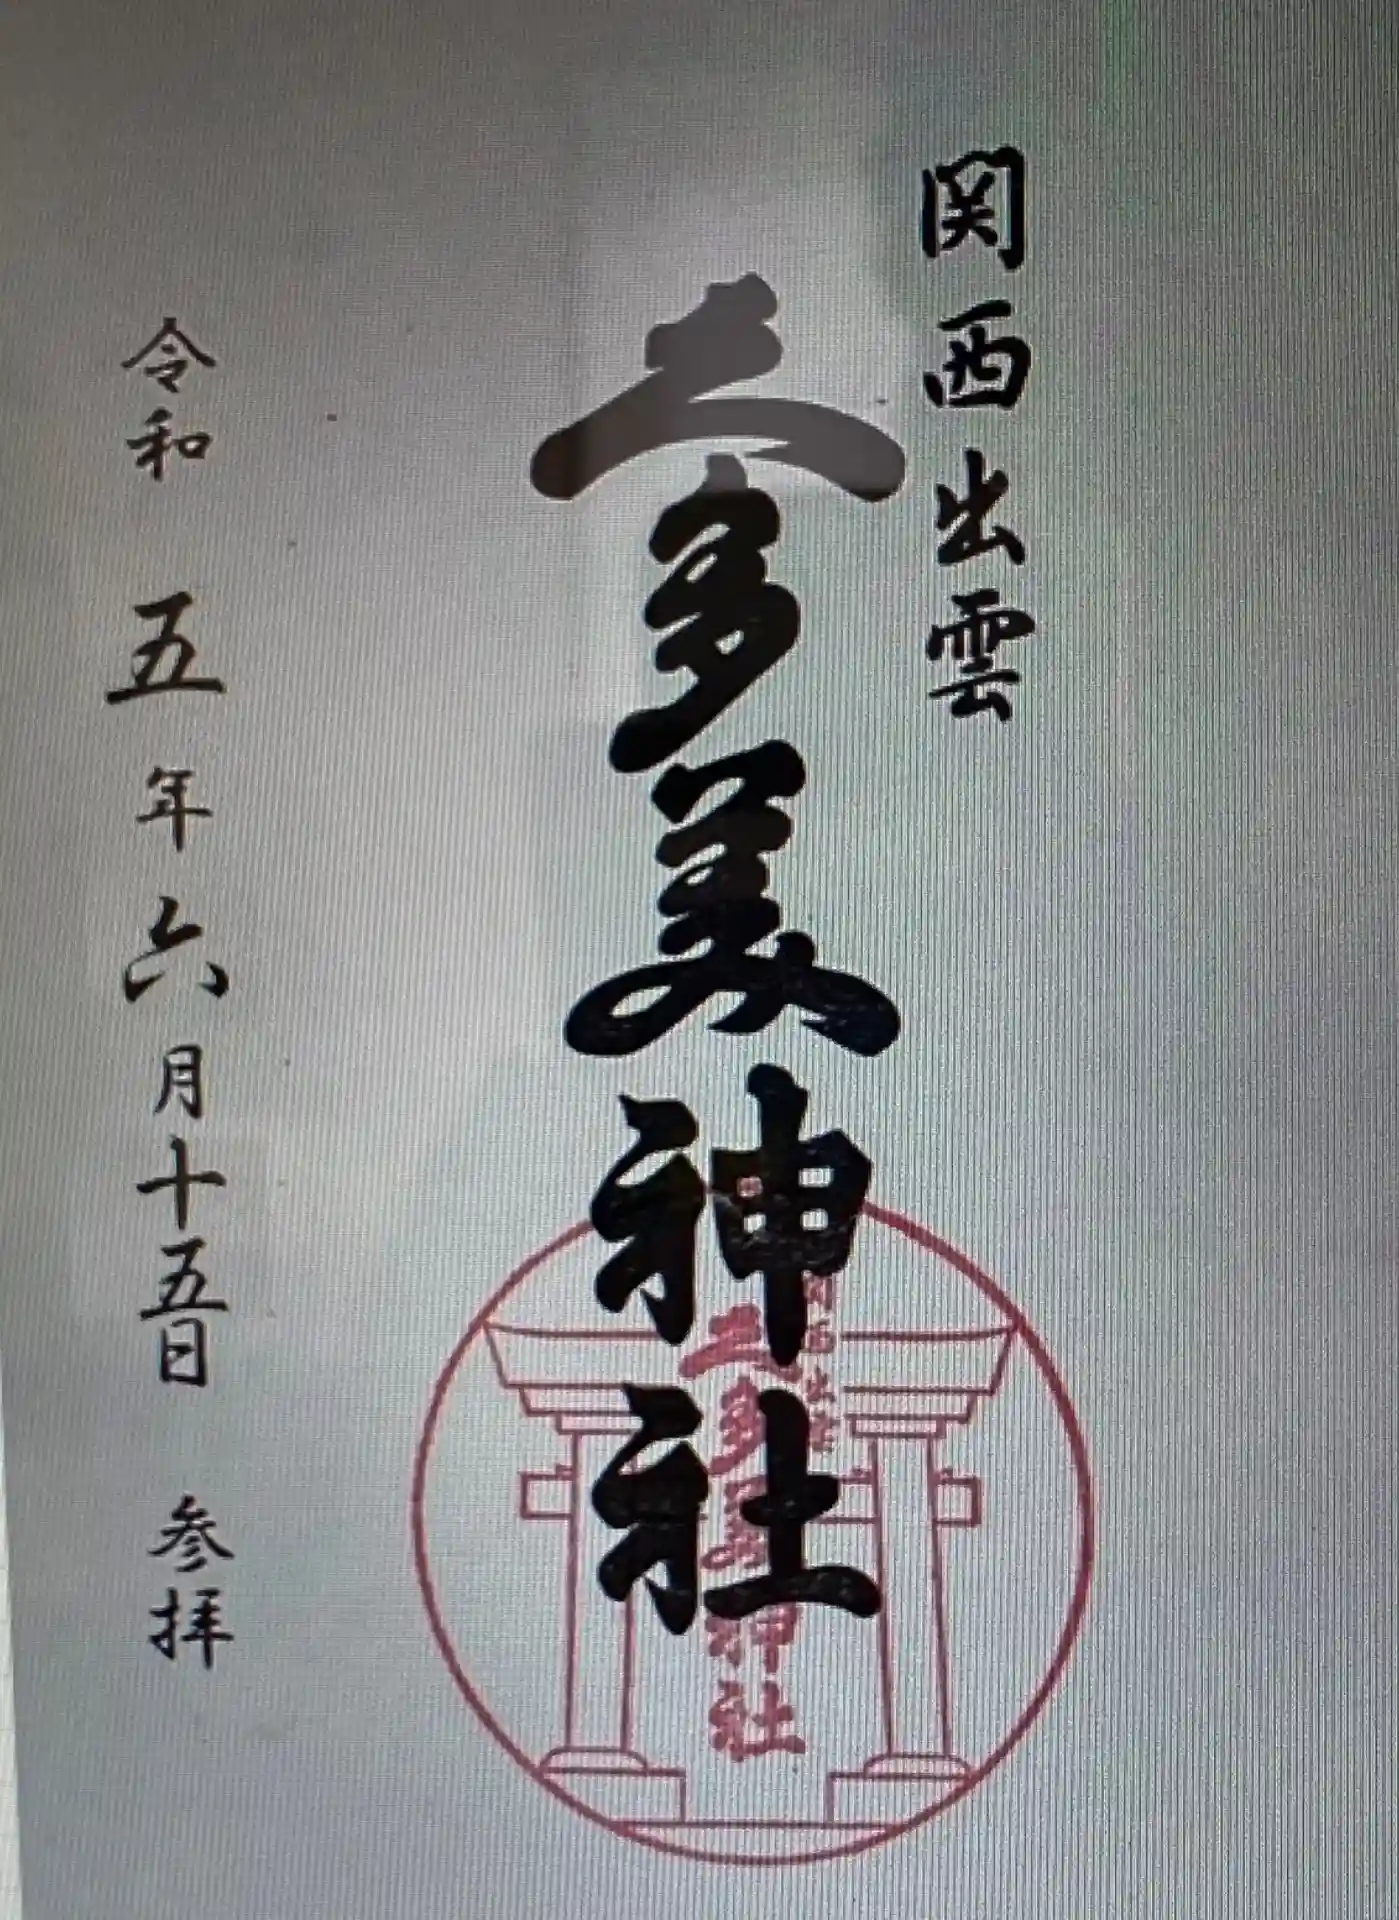 関西出雲
久多美神社
令和五年六月十五日 参拝
関西出雲
久多美神社